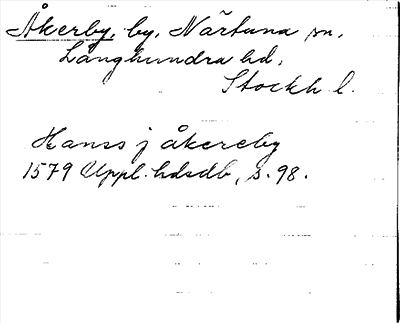 Åkerby, by, Närtuna sn,
Långhundra hd,
Stockh. l.
Hanss j åkereby
1579 Uppl. hdsdb, s. 98.